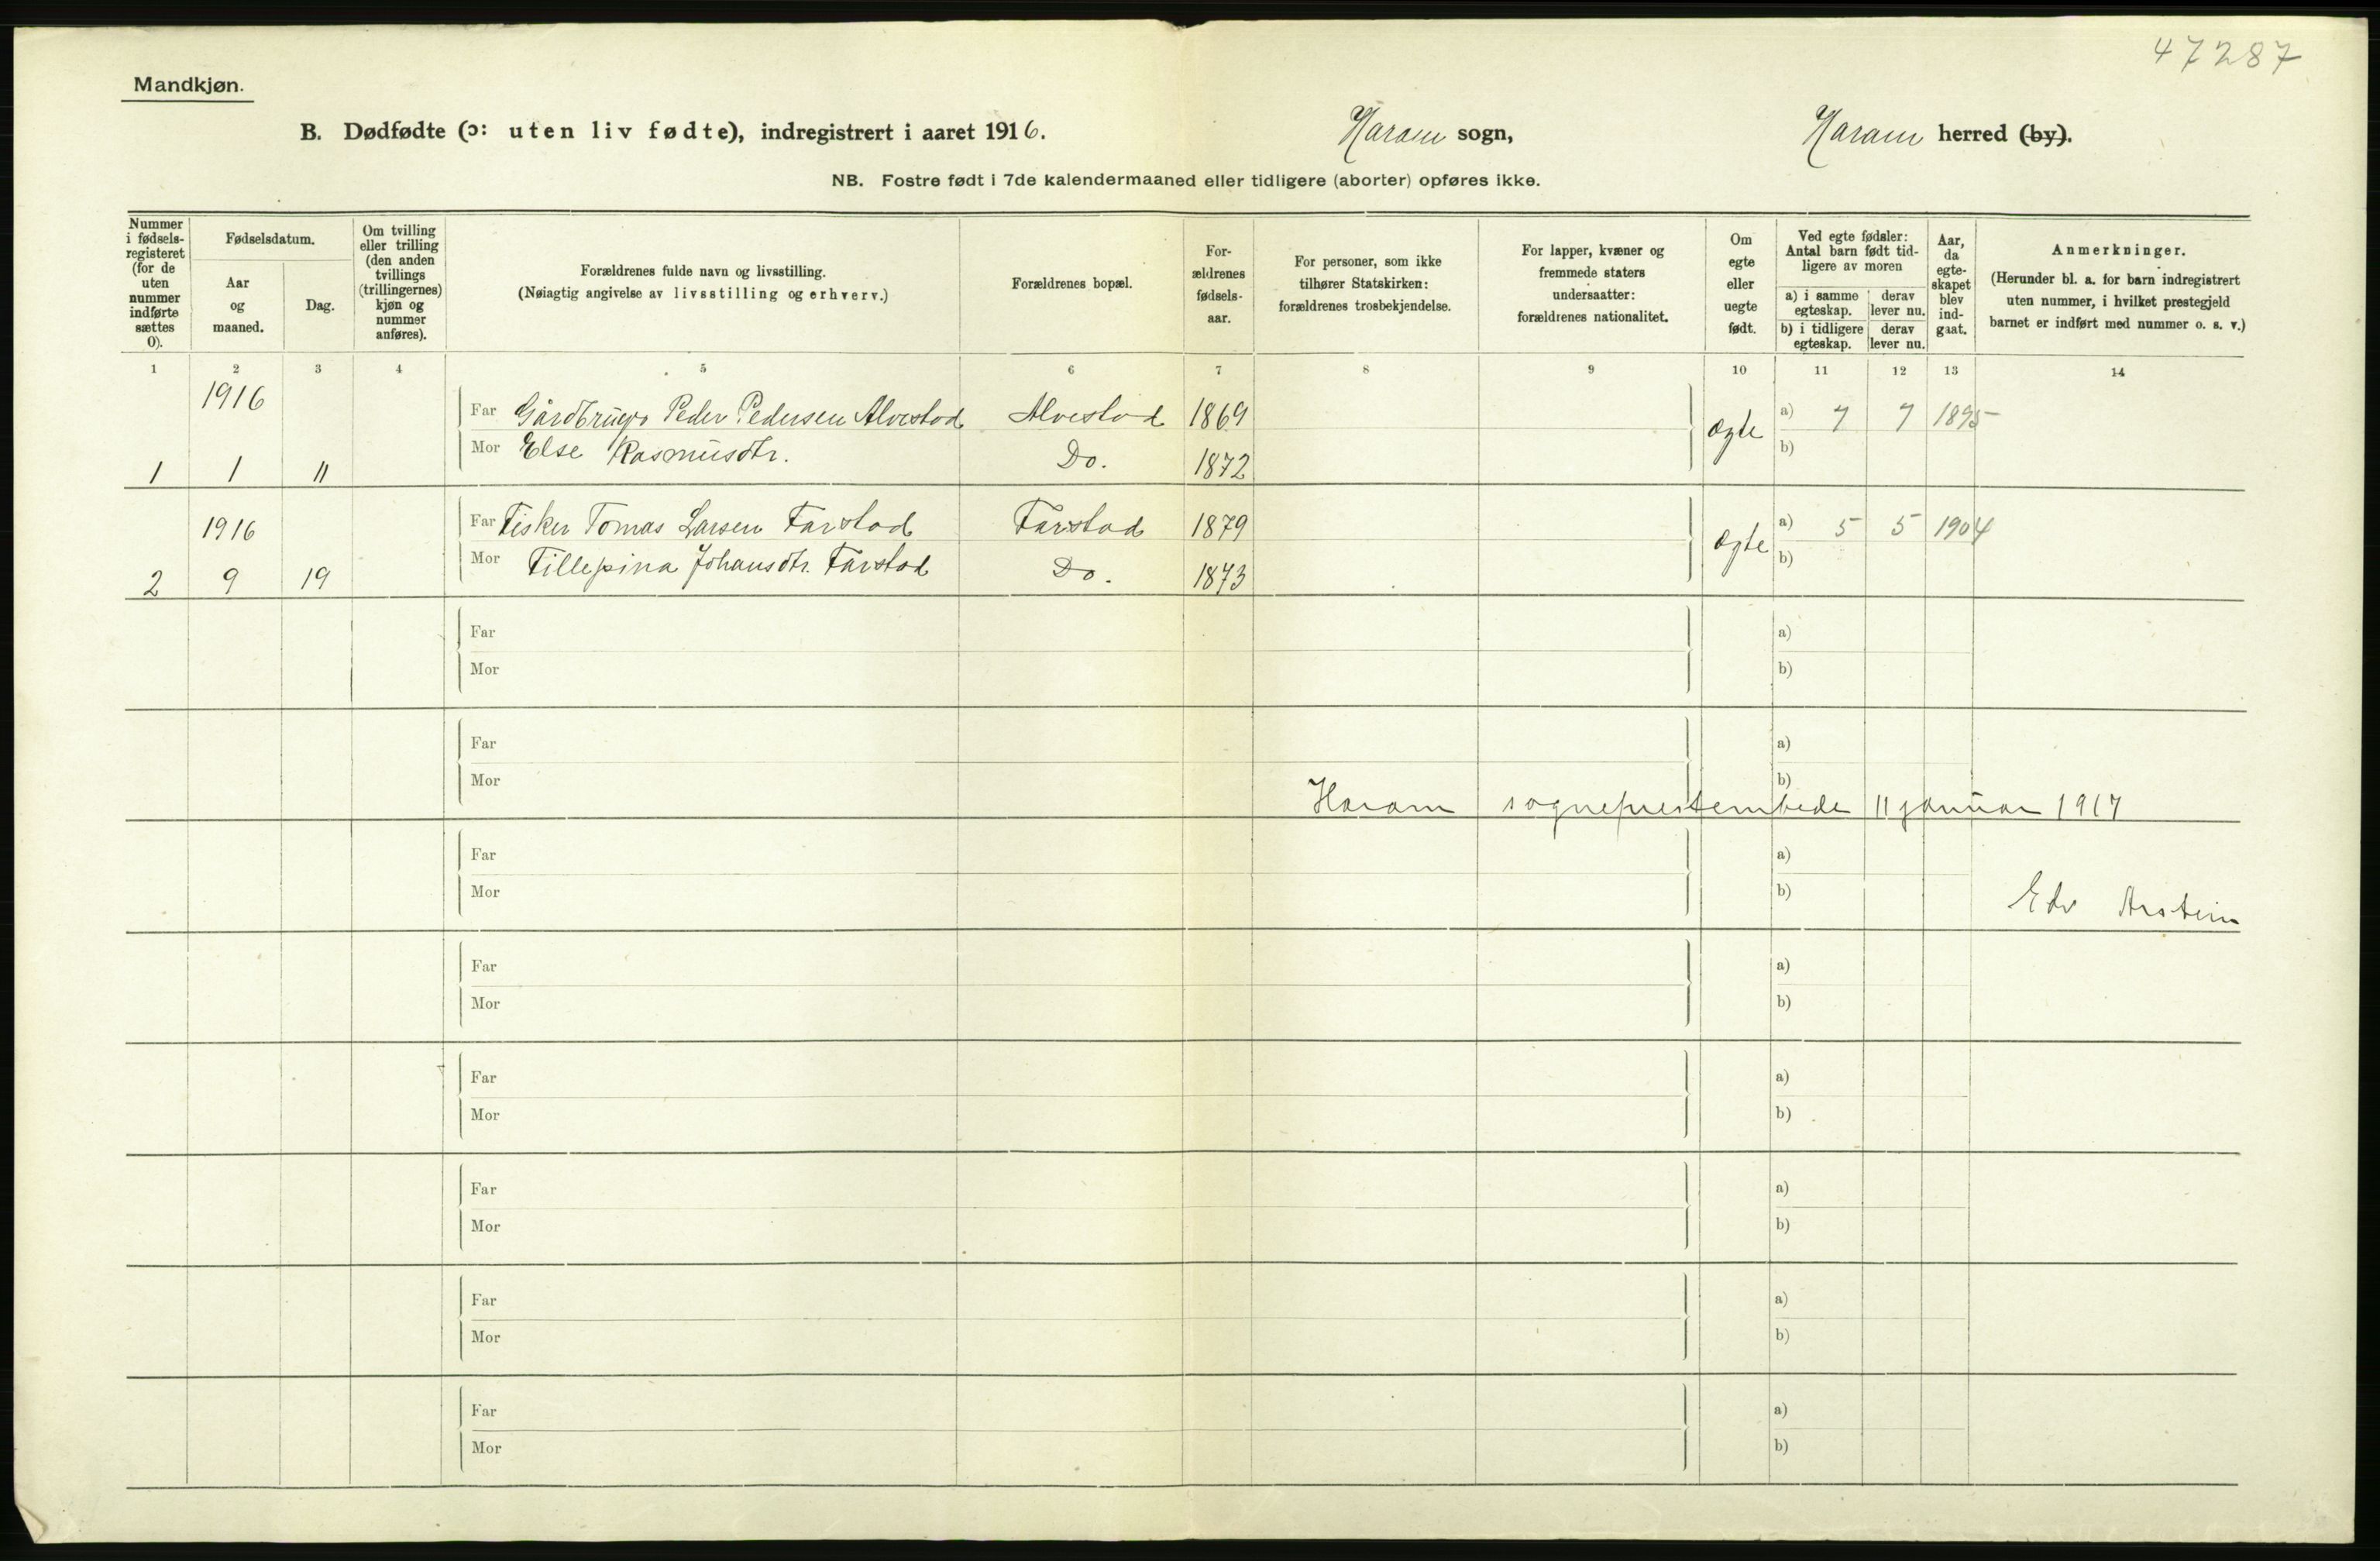 47287
Mandkjøn.
B. Dødfødte (ɔ: uten liv fødte), indregistrert i aaret 1916. Haram sogn, Haram herred (by).
NB. Fostre født i 7de kalendermaaned eller tidligere (aborter) opføres ikke.
Nummer i fødsels-registeret (for de uten nummer indførte sættes 0).
Fødselsdatum.
Aar og maaned.
Dag.
Om tvilling eller trilling (den anden tvillings (trillingernes) kjøn og nummer anføres).
Forældrenes fulde navn og livsstilling.
(Nøiagtig angivelse av livsstilling og erhverv.)
Forældrenes bopæl.
For-ældrenes fødsels-aar.
For personer, som ikke tilhører Statskirken: forældrenes trosbekjendelse.
For lapper, kvæner og fremmede staters undersaatter: forældrenes nationalitet.
Om egte eller uegte født.
Ved egte fødsler: Antal barn født tid-ligere av moren
a) i samme egteskap. derav lever nu.
b) i tidligere egteskap. derav lever nu.
Aar, da egte-skapet blev ind-gaat.
Anmerkninger.
(Herunder bl. a. for barn indregistrert uten nummer, i hvilket prestegjeld barnet er indført med nummer o. s. v.)
1 2 3 4 5 6 7 8 9 10 11 12 13 14
1916 Far Peder Pedersen Alvestad Alvestad 1869 a) 7 7 1895
1 1 11 Mor Else Rasmusdtr. Do. 1872 Ægte b)
1916 Far Fisker Tomas Larsen Farstad Farstad 1879 a) 5 5 1904
2 9 19 Mor Johansdtr. Farstad Do. 1873 Ægte b)
Far a)
Mor b)
Far a)
Mor b)
Haram sogneprestembede 11 januar 1917
Far a)
Mor b)
Edv
Far a)
Mor b)
Far a)
Mor b)
Far a)
Mor b)
Far a)
Mor b)
Far a)
Mor b)